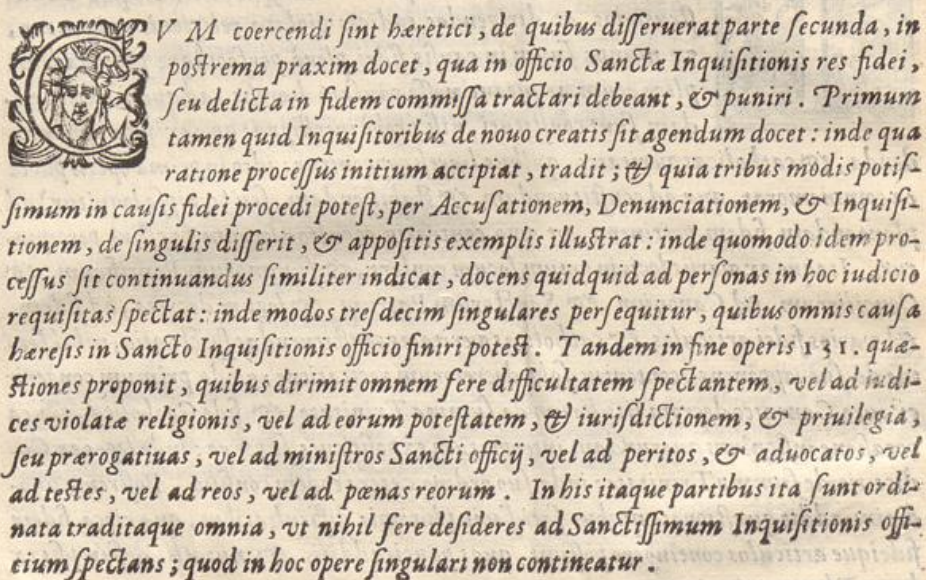 CVM coercendi sint hæretici, de quibus disseruerat parte secunda, in
postrema praxim docet, qua in officio Sanctæ Inquisitionis res fidei,
seu delicta in fidem commissa tractari debeant, & puniri. Primum
tamen quid Inquisitoribus de nouo creatis sit agendum docet: inde qua
ratione processus initium accipiat, tradit; & quia tribus modis potis-
simum in causis fidei procedi potest, per Accusationem, Denunciationem, & Inquisi-
tionem, de singulis disserit, & appositis exemplis illustrat: inde quomodo idem pro-
cessus sit continuandus similiter indicat, docens quidquid ad personas in hoc iudicio
requisitas spectat: inde modos tresdecim singulares persequitur, quibus omnis causa
hæresis in Sancto Inquisitionis officio finiri potest. Tandem in fine operis 131. quæ-
stiones proponit, quibus dirimit omnem fere difficultatem spectantem, vel ad iudi-
ces violatæ religionis, vel ad eorum potestatem, & iurisdictionem, & priuilegia,
seu prærogatiuas, vel ad ministros Sancti officij, vel ad peritos, & aduocatos, vel
ad testes, vel ad reos, vel ad pœnas reorum. In his itaque partibus ita sunt ordi-
nata traditaque omnia, vt nihil fere desideres ad Sanctissimum Inquisitionis offi-
tium spectans; quod in hoc opere singulari non contineatur.